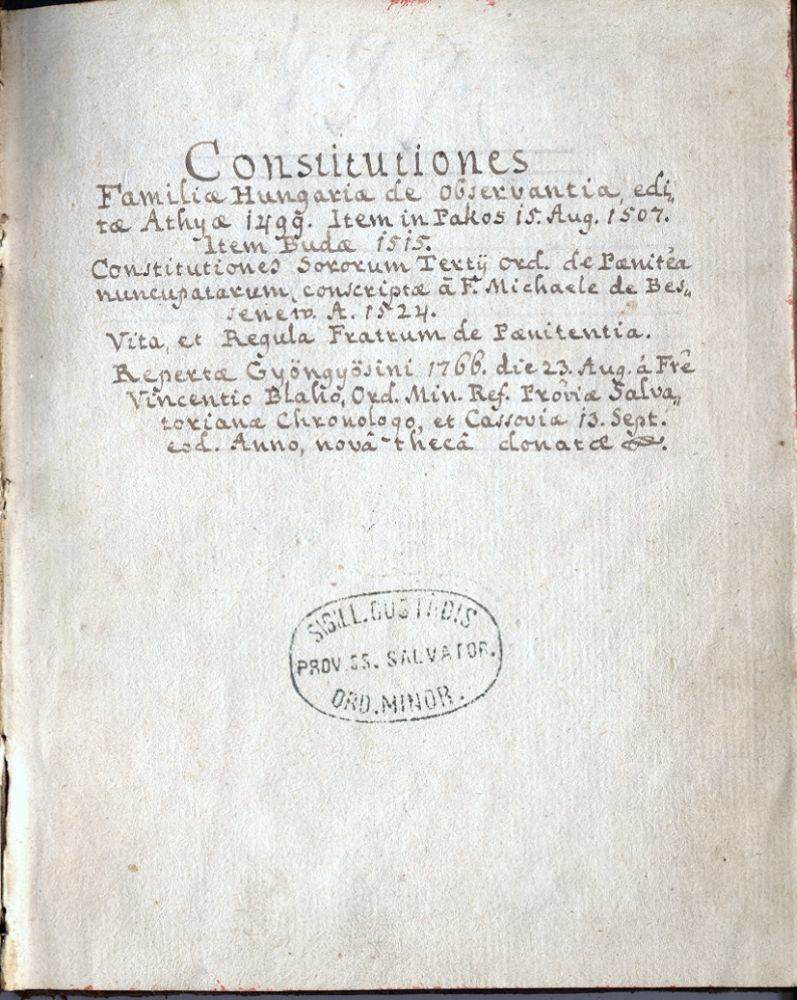 Constitutiones
Familiæ Hungariæ de observantia, edi„
tæ Athyæ 1499. Item in Pakos 15. Aug. 1507.
Item Budæ 1515.
Constitutiones Sororum Tertÿ Ord. de Pænitēa
nuncupatarum, conscriptæ ā F. Michaele de Bes„
senew. A. 1524.
Vita, et Regula Fratrum de Pænitentia.
Repertæ Gyöngyösini 1766. die 23. Aug. á Frē
Vincentio Blaho, Ord. Min. Ref. Prōviæ Salva„
torianæ Chronologo, et Cassoviæ 13. Sept.
eod. Anno, novâ thecâ donatæ.
SIGILL. CUSTODIS
PROV. SS. SALVATOR.
ORD. MINOR.